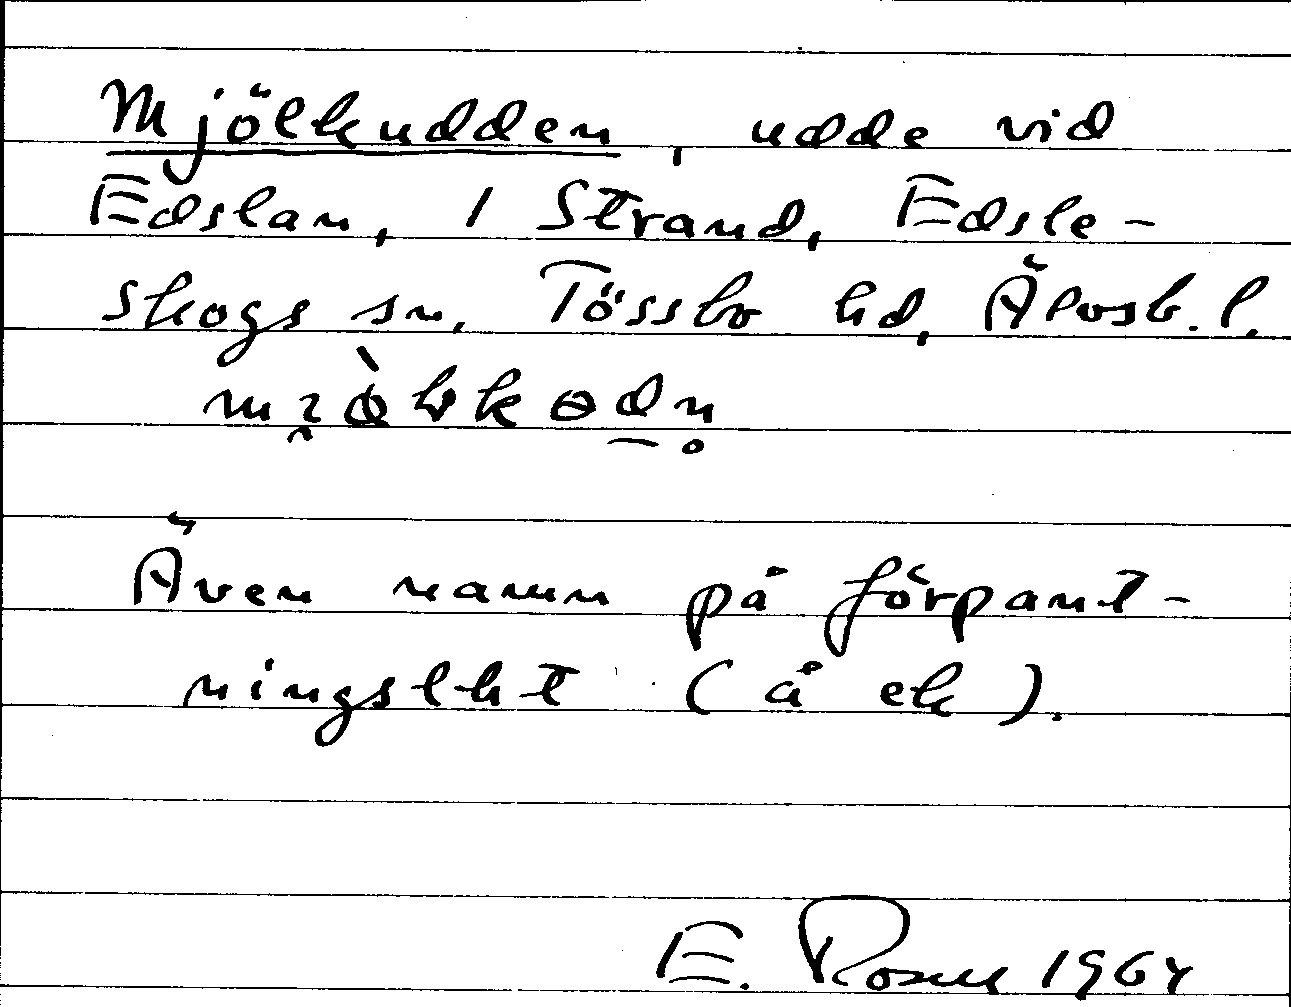 Mjölkudden, udde vid
Edslan, 1 Strand, Edsle-
skogs sn, Tössbo hd, Älvsb. l.
Även namn på förpant-
ningslht (å ek).
E. Rosell 1964